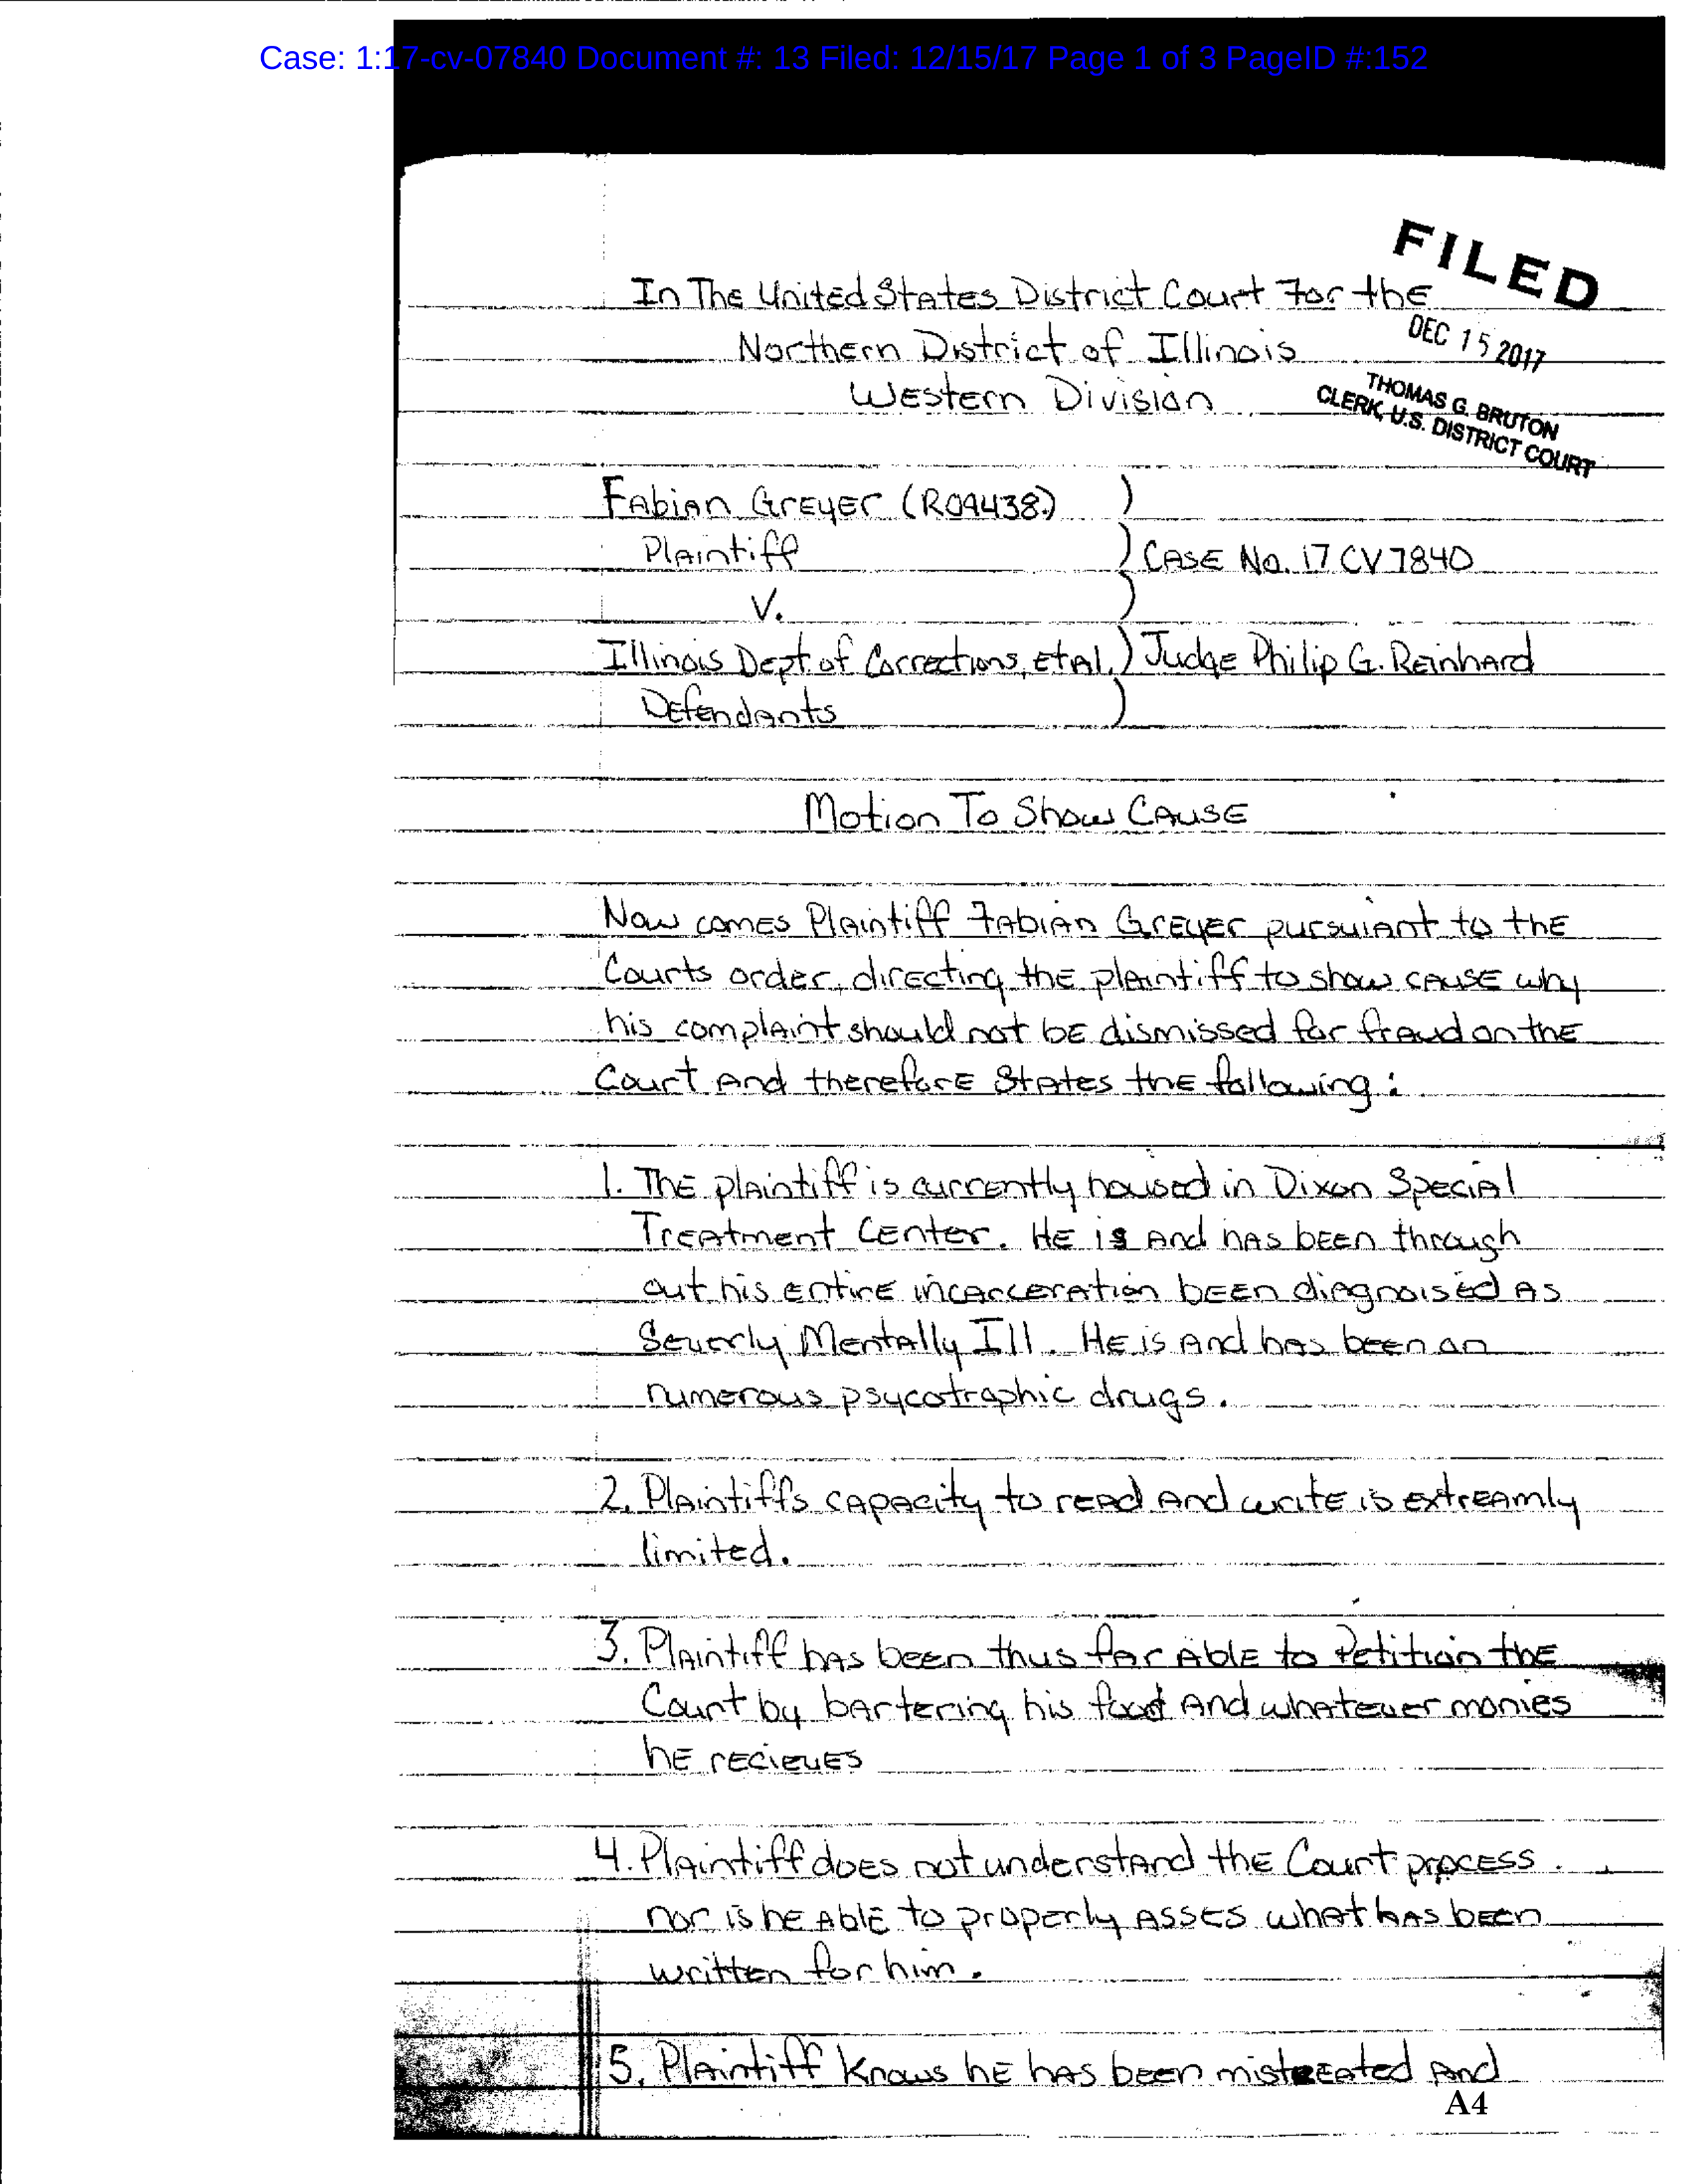 Case: 1:17-cv-07840 Document #: 13 Filed: 12/15/17 Page 1 of 3 PageID #:152
FILED
DEC 15 2017
THOMAS G. BRUTON
CLERK, U.S. DISTRICT COURT
In The United States District Court For the
Northern District of Illinois
Western Division
Fabian Greyer (R09438.) )
Plaintiff ) Case No. 17 CV 7840
V. )
Illinois Dept. of Corrections, Et Al. ) Judge Philip G. Reinhard
Defendants )
Motion To Show Cause
Now comes Plaintiff Fabian Greyer pursuiant to the
Courts order, directing the plaintiff to show cause why
his complaint should not be dismissed for fraud on the
Court and therefore States the following:
1. The plaintiff is currently housed in Dixon Special
Treatment Center. He is and has been through
out his entire incarceration been diagnoised as
Severly Mentally Ill. He is and has been on
numerous psycotrophic drugs.
2. Plaintiffs capacity to read and write is extreamly
limited.
3. Plaintiff has been thus far able to Petition the
Court by bartering his food and whatever monies
he recieves
4. Plaintiff does not understand the Court process.
nor is he able to properly asses what has been
written for him.
5. Plaintiff knows he has been mistreated and
A4